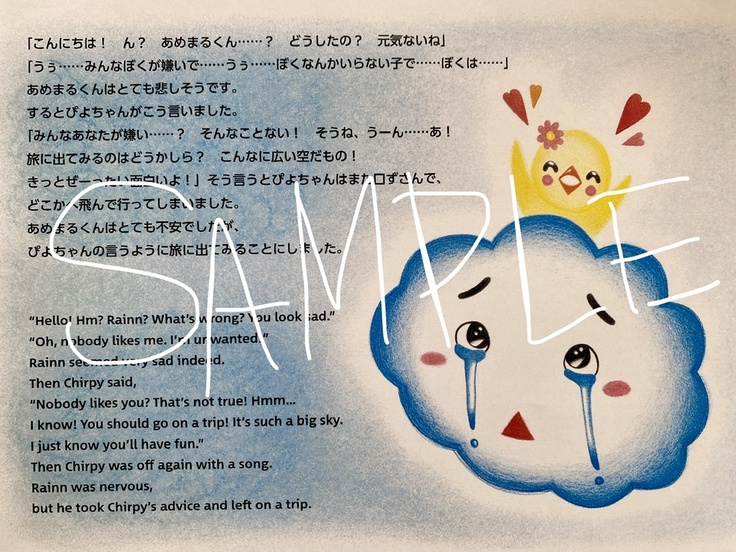 「こんにちは！　ん？　あめまるくん……？　どうしたの？　元気ないね」
「うぅ……みんなぼくが嫌いで……うぅ……ぼくなんかいらない子で……ぼくは……」
あめまるくんはとても悲しそうです。
するとぴよちゃんがこう言いました。
「みんなあなたが嫌い……？　そんなことない！　そうね、うーん……あ！
旅に出てみるのはどうかしら？　こんなに広い空だもの！
きっとぜーったい面白いよ！」そう言うとぴよちゃんはまた口ずさんで、
どこかへ飛んで行ってしまいました。
あめまるくんはとても不安でしたが、
ぴよちゃんの言うように旅に出てみることにしました。
“Hello! Hm? Rainn? What’s wrong? You look sad.”
“Oh, nobody likes me. I’m unwanted.”
Rainn seemed very sad indeed.
Then Chirpy said,
“Nobody likes you? That’s not true! Hmm...
I know! You should go on a trip! It’s such a big sky.
I just know you’ll have fun.”
Then Chirpy was off again with a song.
Rainn was nervous,
but he took Chirpy’s advice and left on a trip.
SAMPLE